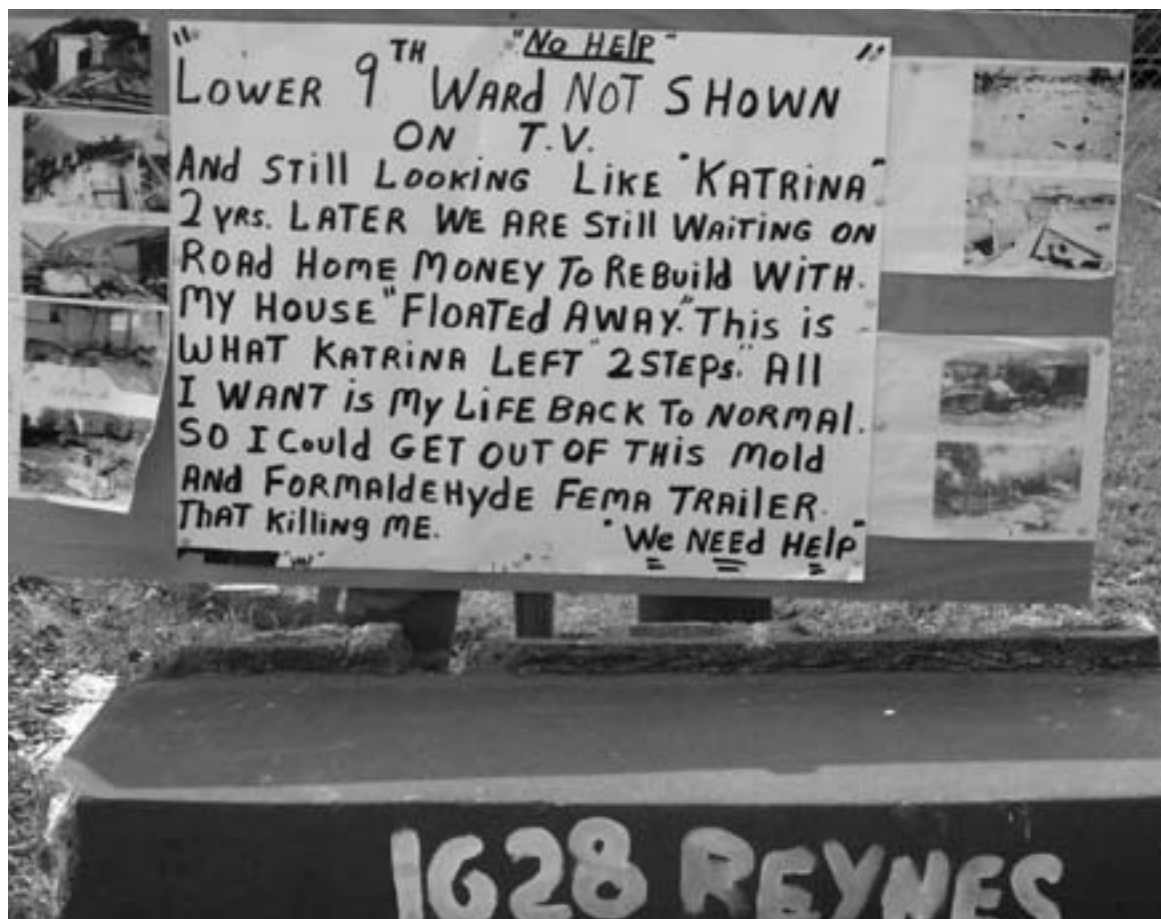 "No HElp"
LOWER 9TH WARd NOT SHOWN
ON T.V.
ANd STill LOOKiNG LiKE "KATRiNA"
2 YRS. LATER WE ARE STill WAiTiNG ON
ROAd HOME MONEY To REBUild WiTH.
MY HOUSE "FlOATEd AWAY." This is
WHAT KATRiNA LEFT "2 STEPs." All
I WANT is My LiFE BACK To NORMAL.
SO I Could GET OUT OF THis Mold
ANd FORMAldEHyde FEMA TRAilER.
THAT Killing ME. "We NEEd HElp"
1628 REYNES